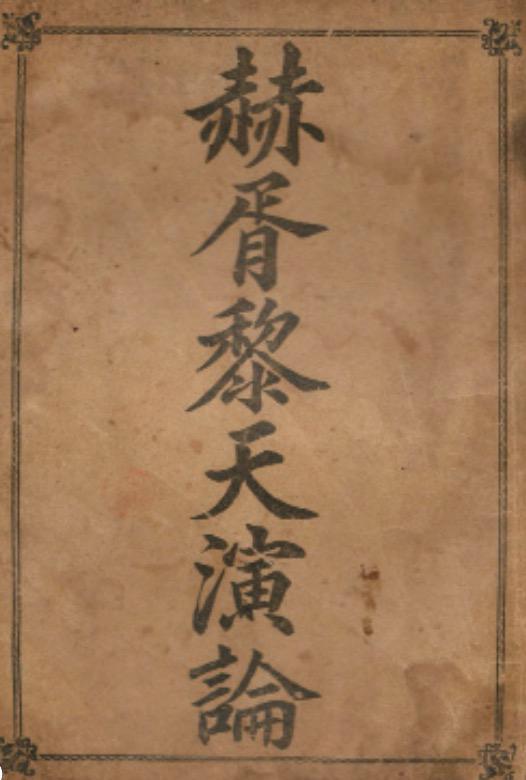 赫胥黎天演論